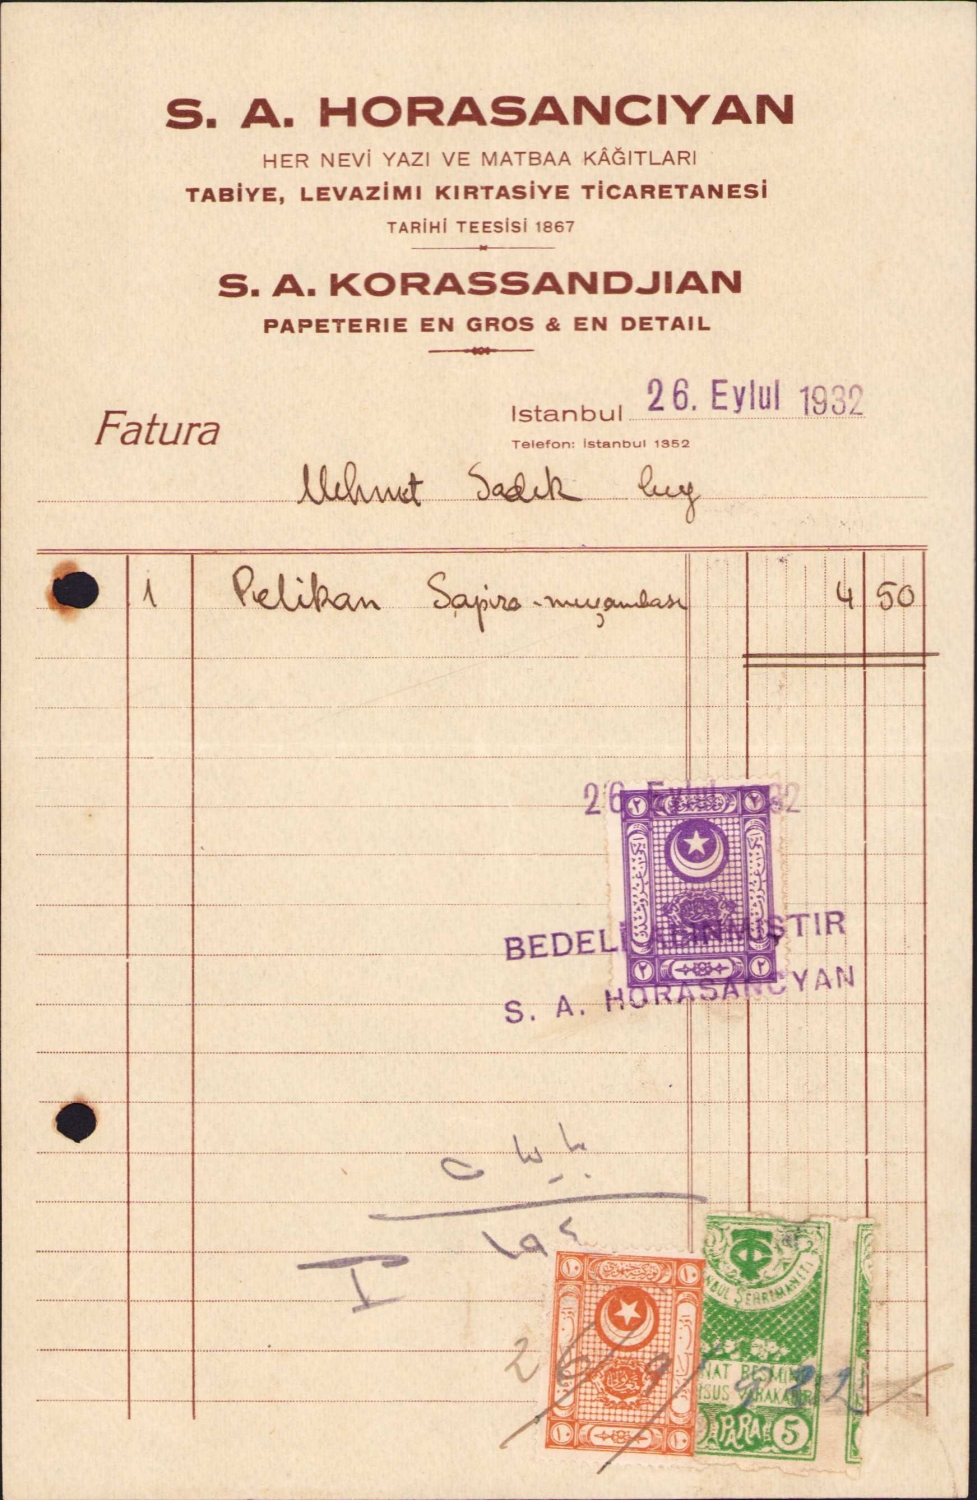 S. A. HORASANCIYAN
HER NEVİ YAZI VE MATBAA KÂĞITLARI
TABİYE, LEVAZİMI KIRTASİYE TİCARETANESİ
TARİHİ TEESİSİ 1867
S. A. KORASSANDJIAN
PAPETERIE EN GROS & EN DETAIL
Fatura
Istanbul 26. Eylul 1932
Telefon: İstanbul 1352
Mehmet Sadık bey
1 Pelikan Sapiro-muşambası 4 50
26 Eylul 1932
٢ ٢
BEDELİ ALINMIŞTIR
٢ ٢
S. A. HORASANCYAN
١٠ ١٠
ŞEHRİMANETİ
26/9/932
RESMİNE
PARA 5
١٠ ١٠